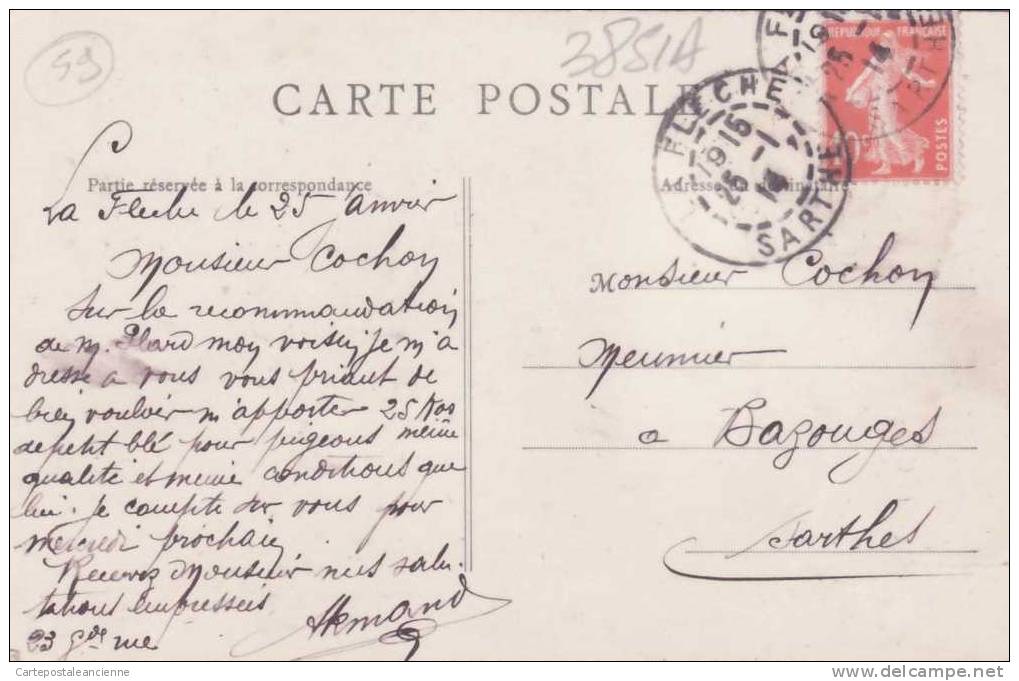 59
3851A
CARTE POSTALE
RÉPUBLIQUE FRANÇAISE
POSTES
LA FLECHE
19 15
25 - 1
14
SARTHE
Partie réservée à la correspondance
Adresse du destinataire
La Fleche le 25 Janvier
Monsieur Cochon
Sur la recommandation
de M. Plard mon voisin je m'a
dresse a vous vous priant de
bien vouloir m'apporter 25 Kos
de petit blé pour pigeons même
qualité et meme conditions que
lui. Je compte sur vous pour
mercredi prochain
Recevez Monsieur mes salu
tations empressées
Armand
23 Gde rue
Monsieur Cochon
Meunier
a Bazouges
Sarthes
Cartepostaleancienne
www.delcampe.net